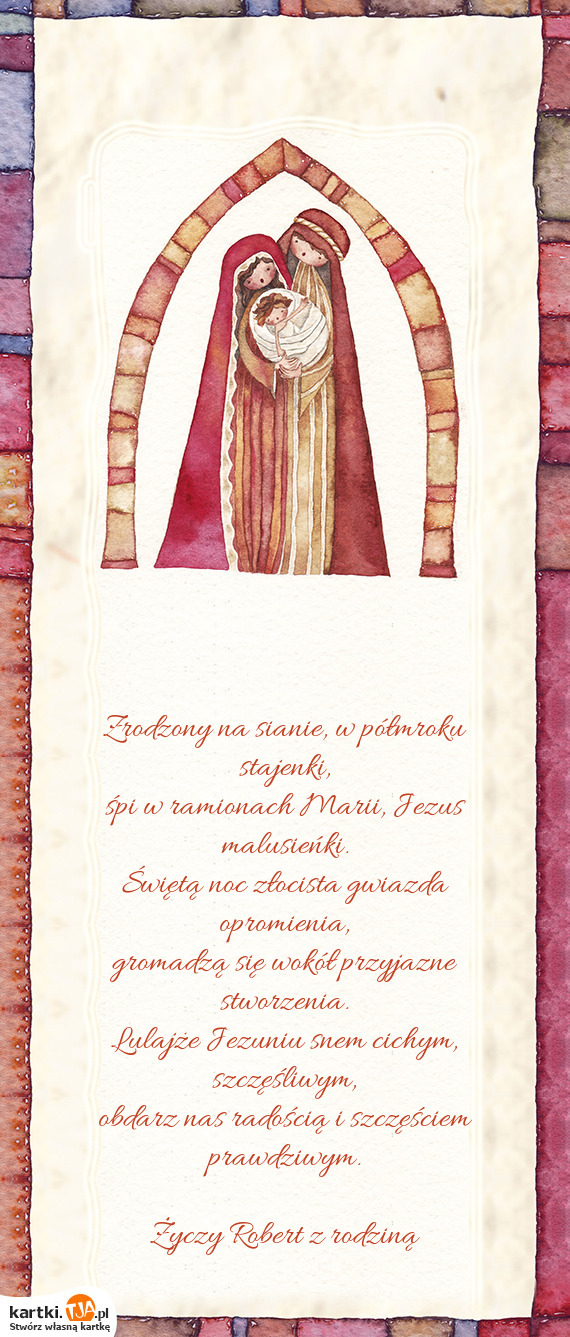 Zrodzony na sianie, w półmroku
stajenki,
śpi w ramionach Marii, Jezus
malusieńki.
Świętą noc złocista gwiazda
opromienia,
gromadzą się wokół przyjazne
stworzenia.
Lulajże Jezuniu snem cichym,
szczęśliwym,
obdarz nas radością i szczęściem
prawdziwym.
Życzy Robert z rodziną
kartki.TJA.pl
Stwórz własną kartkę